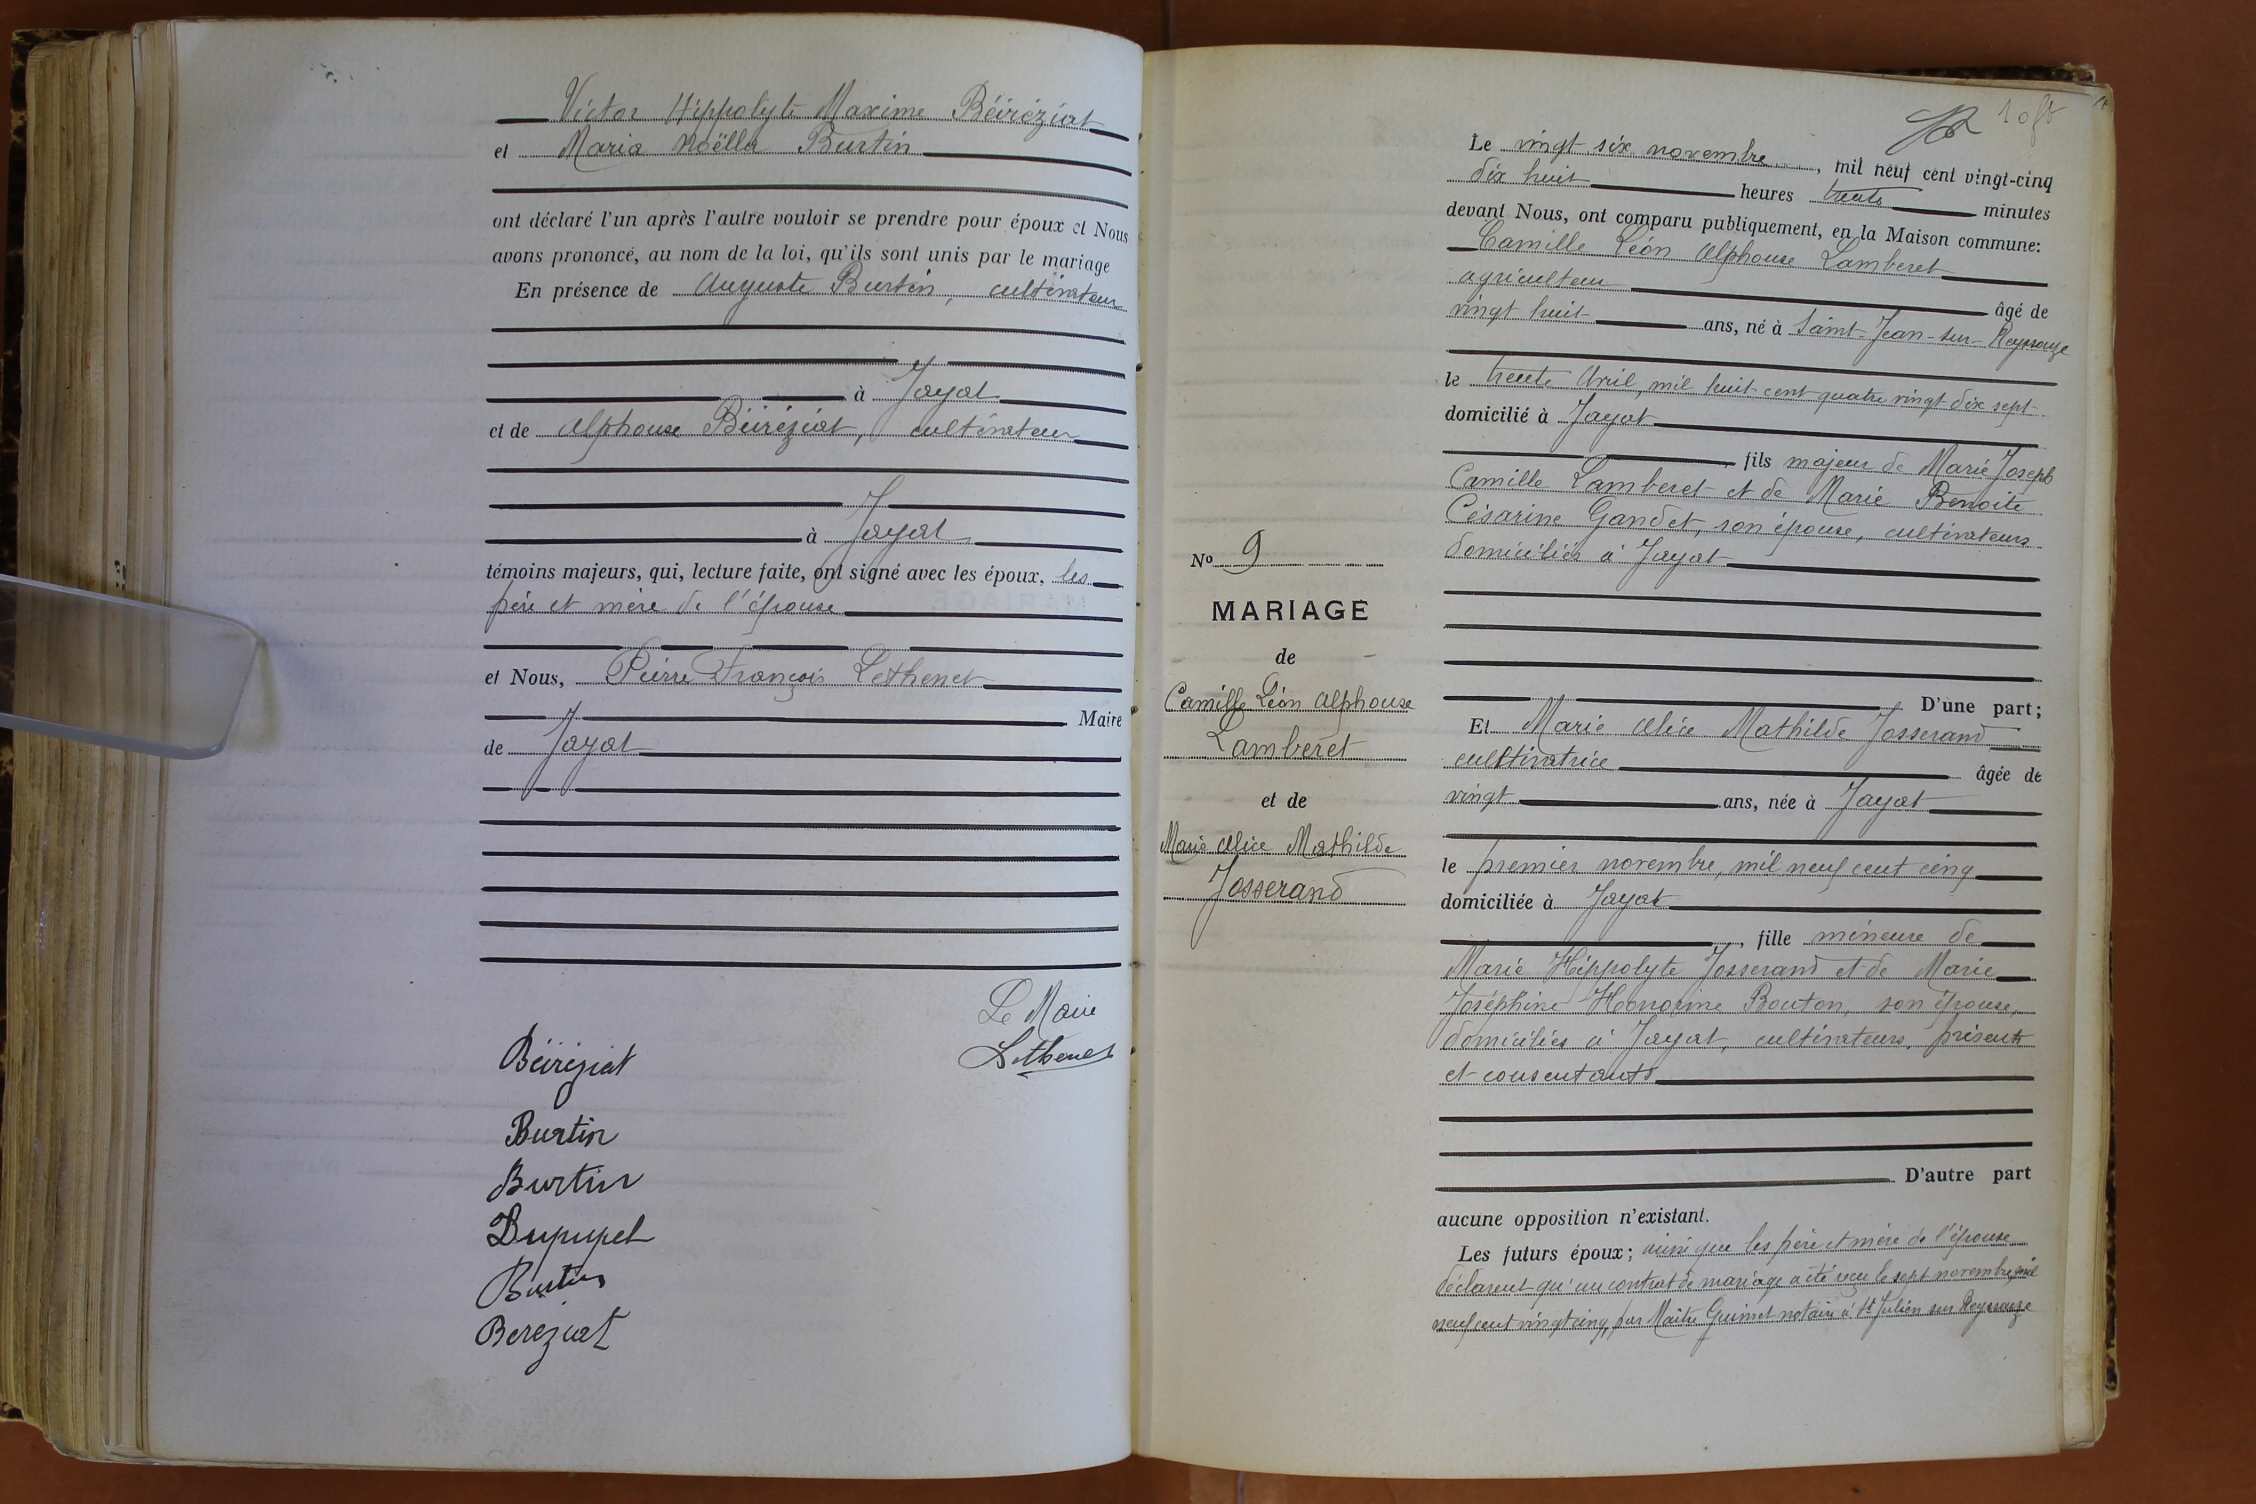 Victor Hippolyte Maxime Béréziat
et Maria Noëlla Burtin
ont déclaré l'un après l'autre vouloir se prendre pour époux et Nous
avons prononcé, au nom de la loi, qu'ils sont unis par le mariage
En présence de Auguste Burtin, cultivateur
à Jayat
et de Alphonse Béréziat, cultivateur
à Jayat
témoins majeurs, qui, lecture faite, ont signé avec les époux, les
père et mère de l'épouse
et Nous, Pierre François Lethenet
Maire
de Jayat
Le Maire
Lethenet
Béréziat
Burtin
Burtin
Dupupet
Burtin
Bereziat
Le vingt six novembre, mil neuf cent vingt-cinq
dix huit heures trente minutes
devant Nous, ont comparu publiquement, en la Maison commune:
Camille Léon Alphonse Lamberet
agriculteur âgé de
vingt huit ans, né à Saint-Jean-sur-Reyssouze
le trente Avril, mil huit cent quatre vingt dix sept
domicilié à Jayat
fils majeur de Marie Joseph
Camille Lamberet et de Marie Benoite
Césarine Gandet, son épouse, cultivateurs
domiciliés à Jayat
D'une part;
Et Marie Alice Mathilde Josserand
cultivatrice âgée de
vingt ans, née à Jayat
le premier novembre, mil neuf cent cinq
domiciliée à Jayat
, fille mineure de
Marie Hippolyte Josserand et de Marie
Joséphine Honorine Bouton, son épouse,
domiciliés à Jayat, cultivateurs, présents
et consentants
D'autre part
aucune opposition n'existant.
Les futurs époux; ainsi que les père et mère de l'épouse
déclarent qu'un contrat de mariage a été reçu le sept novembre mil
neuf cent vingt cinq, par Maître Guinet notaire à St Julien sur Reyssouze
No 9
MARIAGE
de
Camille Léon Alphonse
Lamberet
et de
Marie Alice Mathilde
Josserand